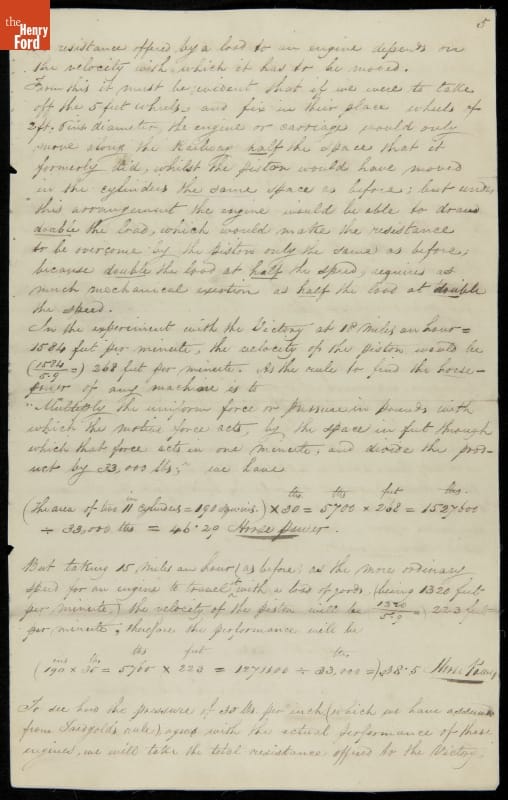 the
Henry
Ford
5
resistance offered by a load to an engine depends on
the velocity with which it has to be moved.
From this it must be evident that if we were to take
off the 5 feet wheels, and fix in their place wheels of
2ft. 6ins diameter, the engine or carriage would only
move along the Railway half the space that it
formerly did, whilst the piston would have moved
in the cylinders the same space as before; but under
this arrangement the engine would be able to draw
double the load, which would make the resistance
to be overcome by the Piston only the same as before,
because double the load at half the speed, requires as
much mechanical exertion as half the load at double
the speed.
In the experiment with the Victory at 18 miles an hour =
1584 feet per minute, the velocity of the piston would be
(1584/5.9 =) 268 feet per minute. As the rule to find the horse-
power of any machine is to
"Multiply the uniform force or pressure in pounds with
which the motive force acts, by the space in feet through
which that force acts in one minute, and divide the prod-
uct by 33,000 lbs," we have
ins lbs lbs feet lbs.
(The area of two 11 cylinders = 190 sq. ins.) × 30 = 5700 × 268 = 1527600
÷ 33,000 lbs = 46.29 Horse Power.
But taking 15 miles an hour (as before) as the more ordinary
speed for an engine to travel at with a load of goods, (being 1320 feet
per minute) the velocity of the piston will be (1320/5.9 =) 223 feet
per minute, therefore the performance will be
ins lbs lbs feet lbs
(190 × 30 = 5700 × 223 = 1271100 ÷ 33,000 =) 38.5 Horse Power
To see how the pressure of 30 lbs. per inch (which we have adduced
from Tredgold's rule) agrees with the actual performance of these
engines, we will take the total resistance offered to the Victory,